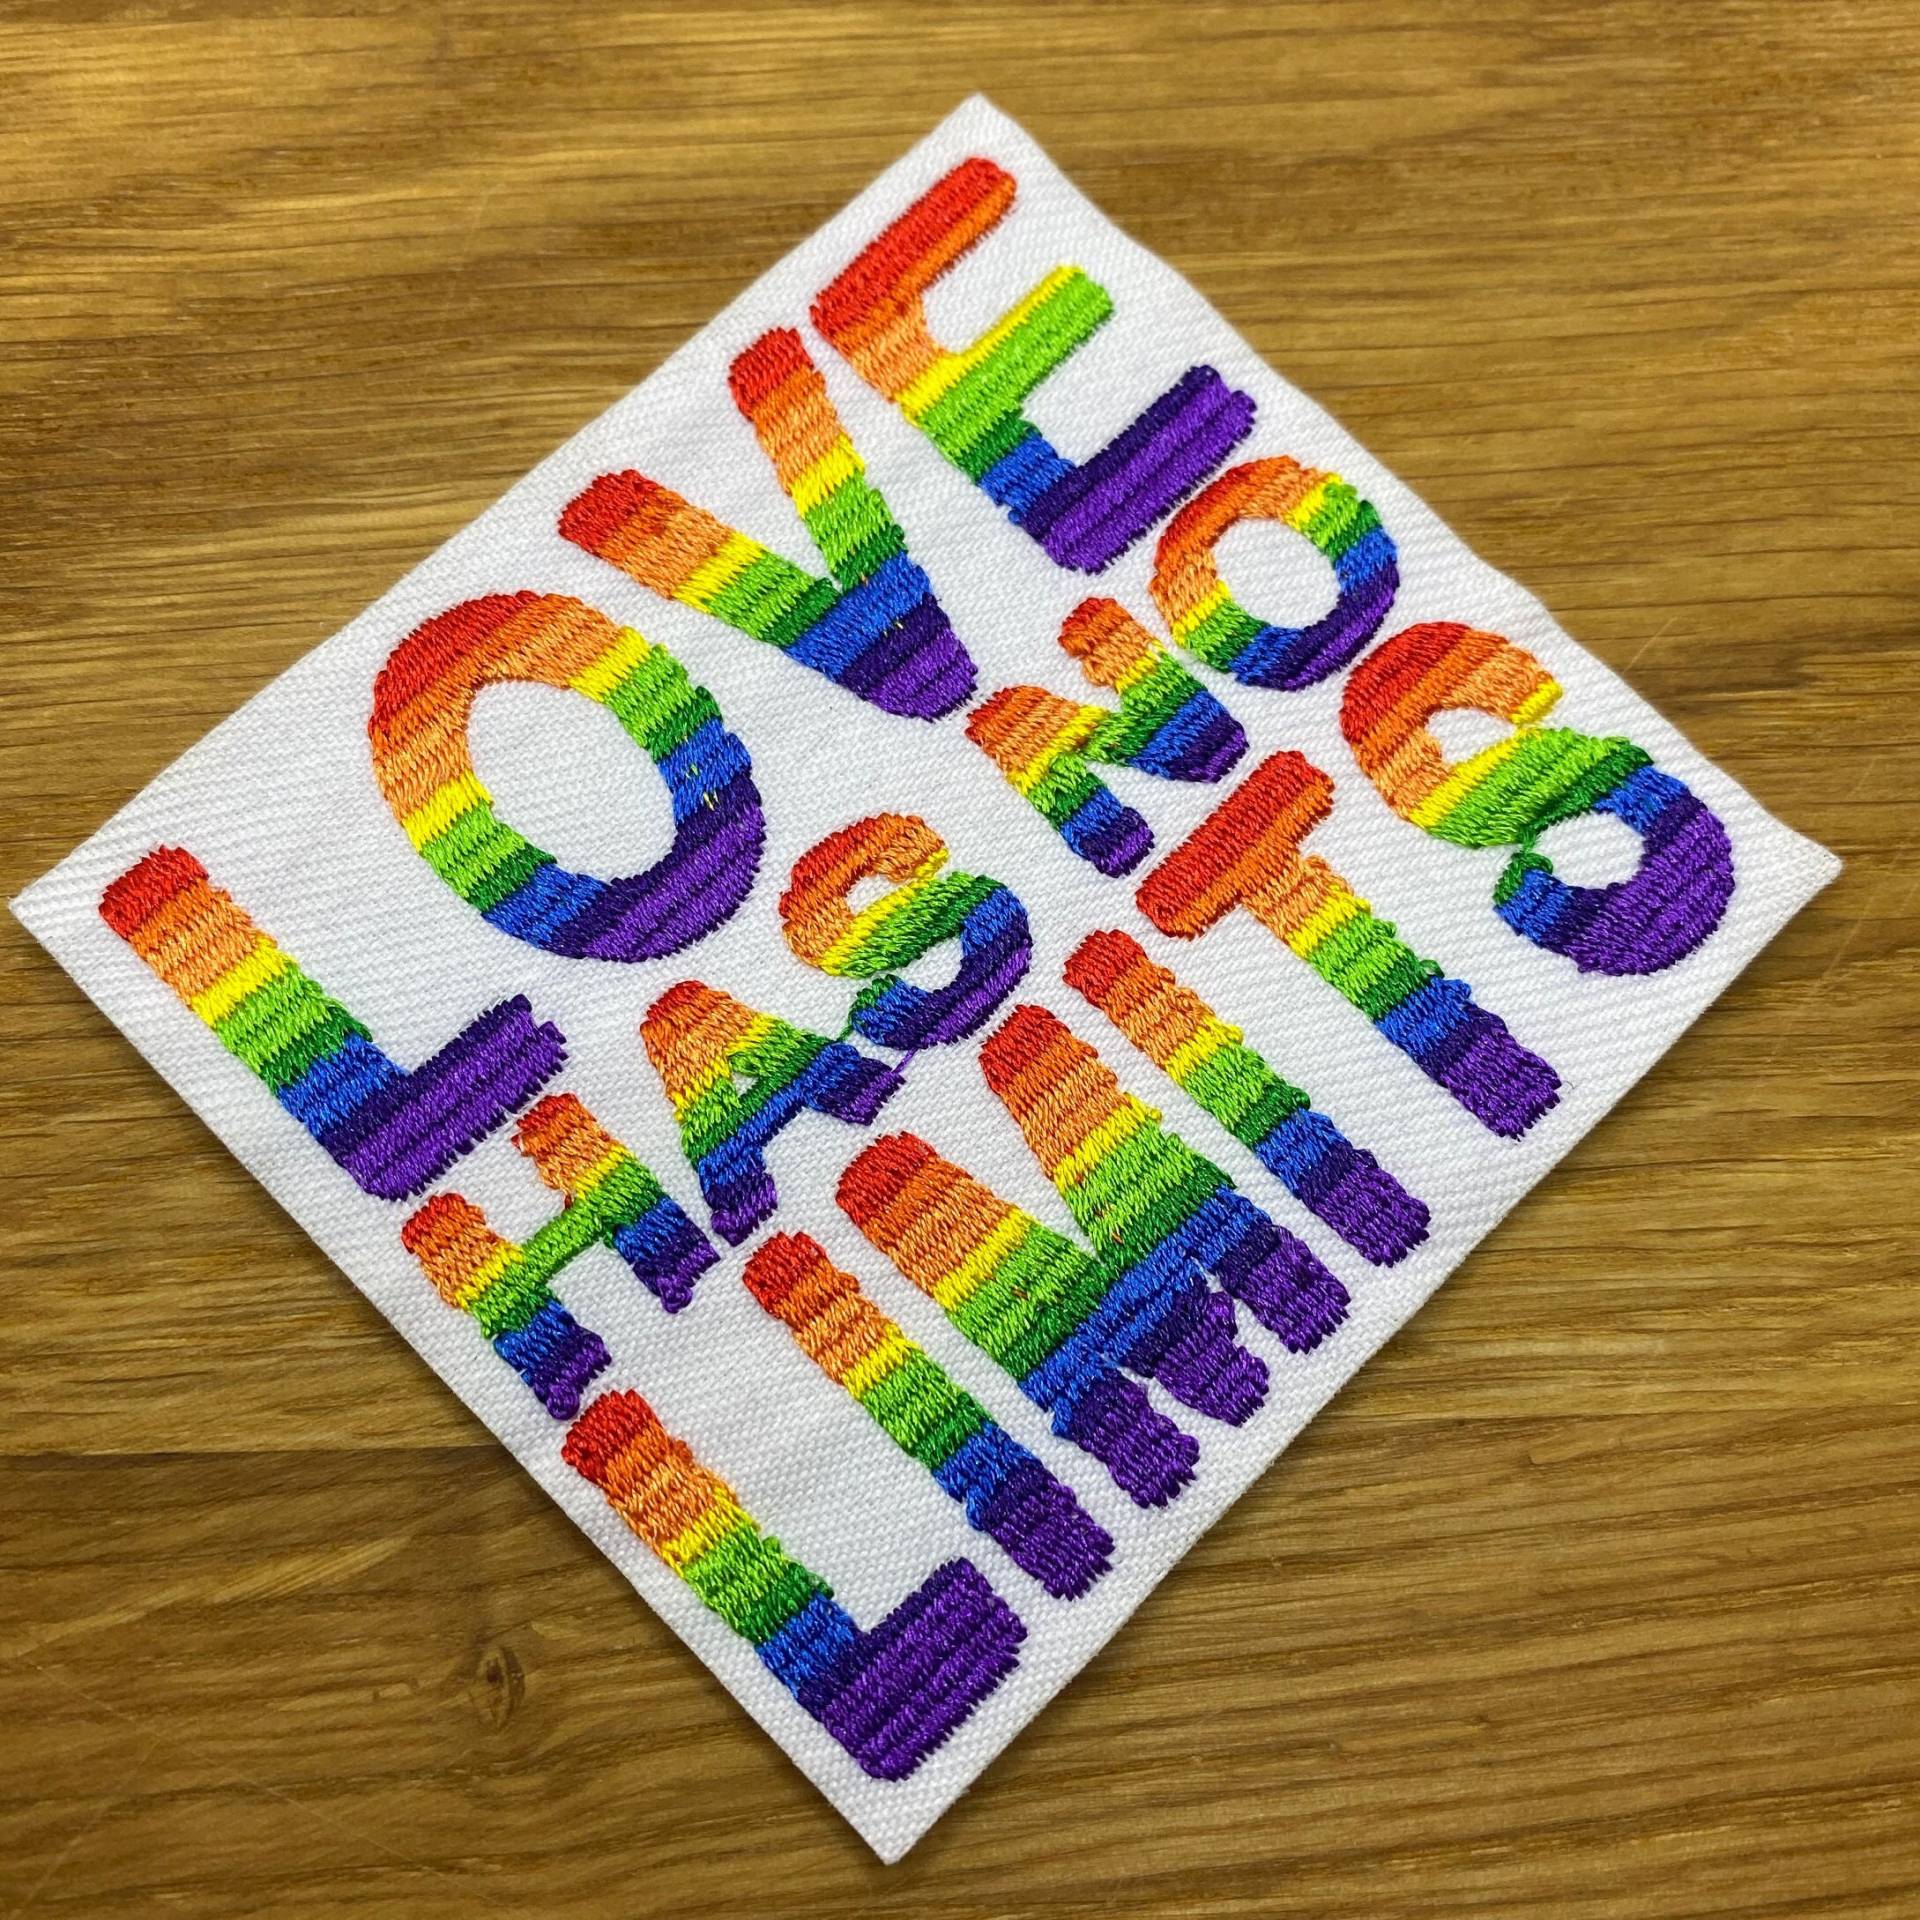 LOVE
HAS NO
LIMITS